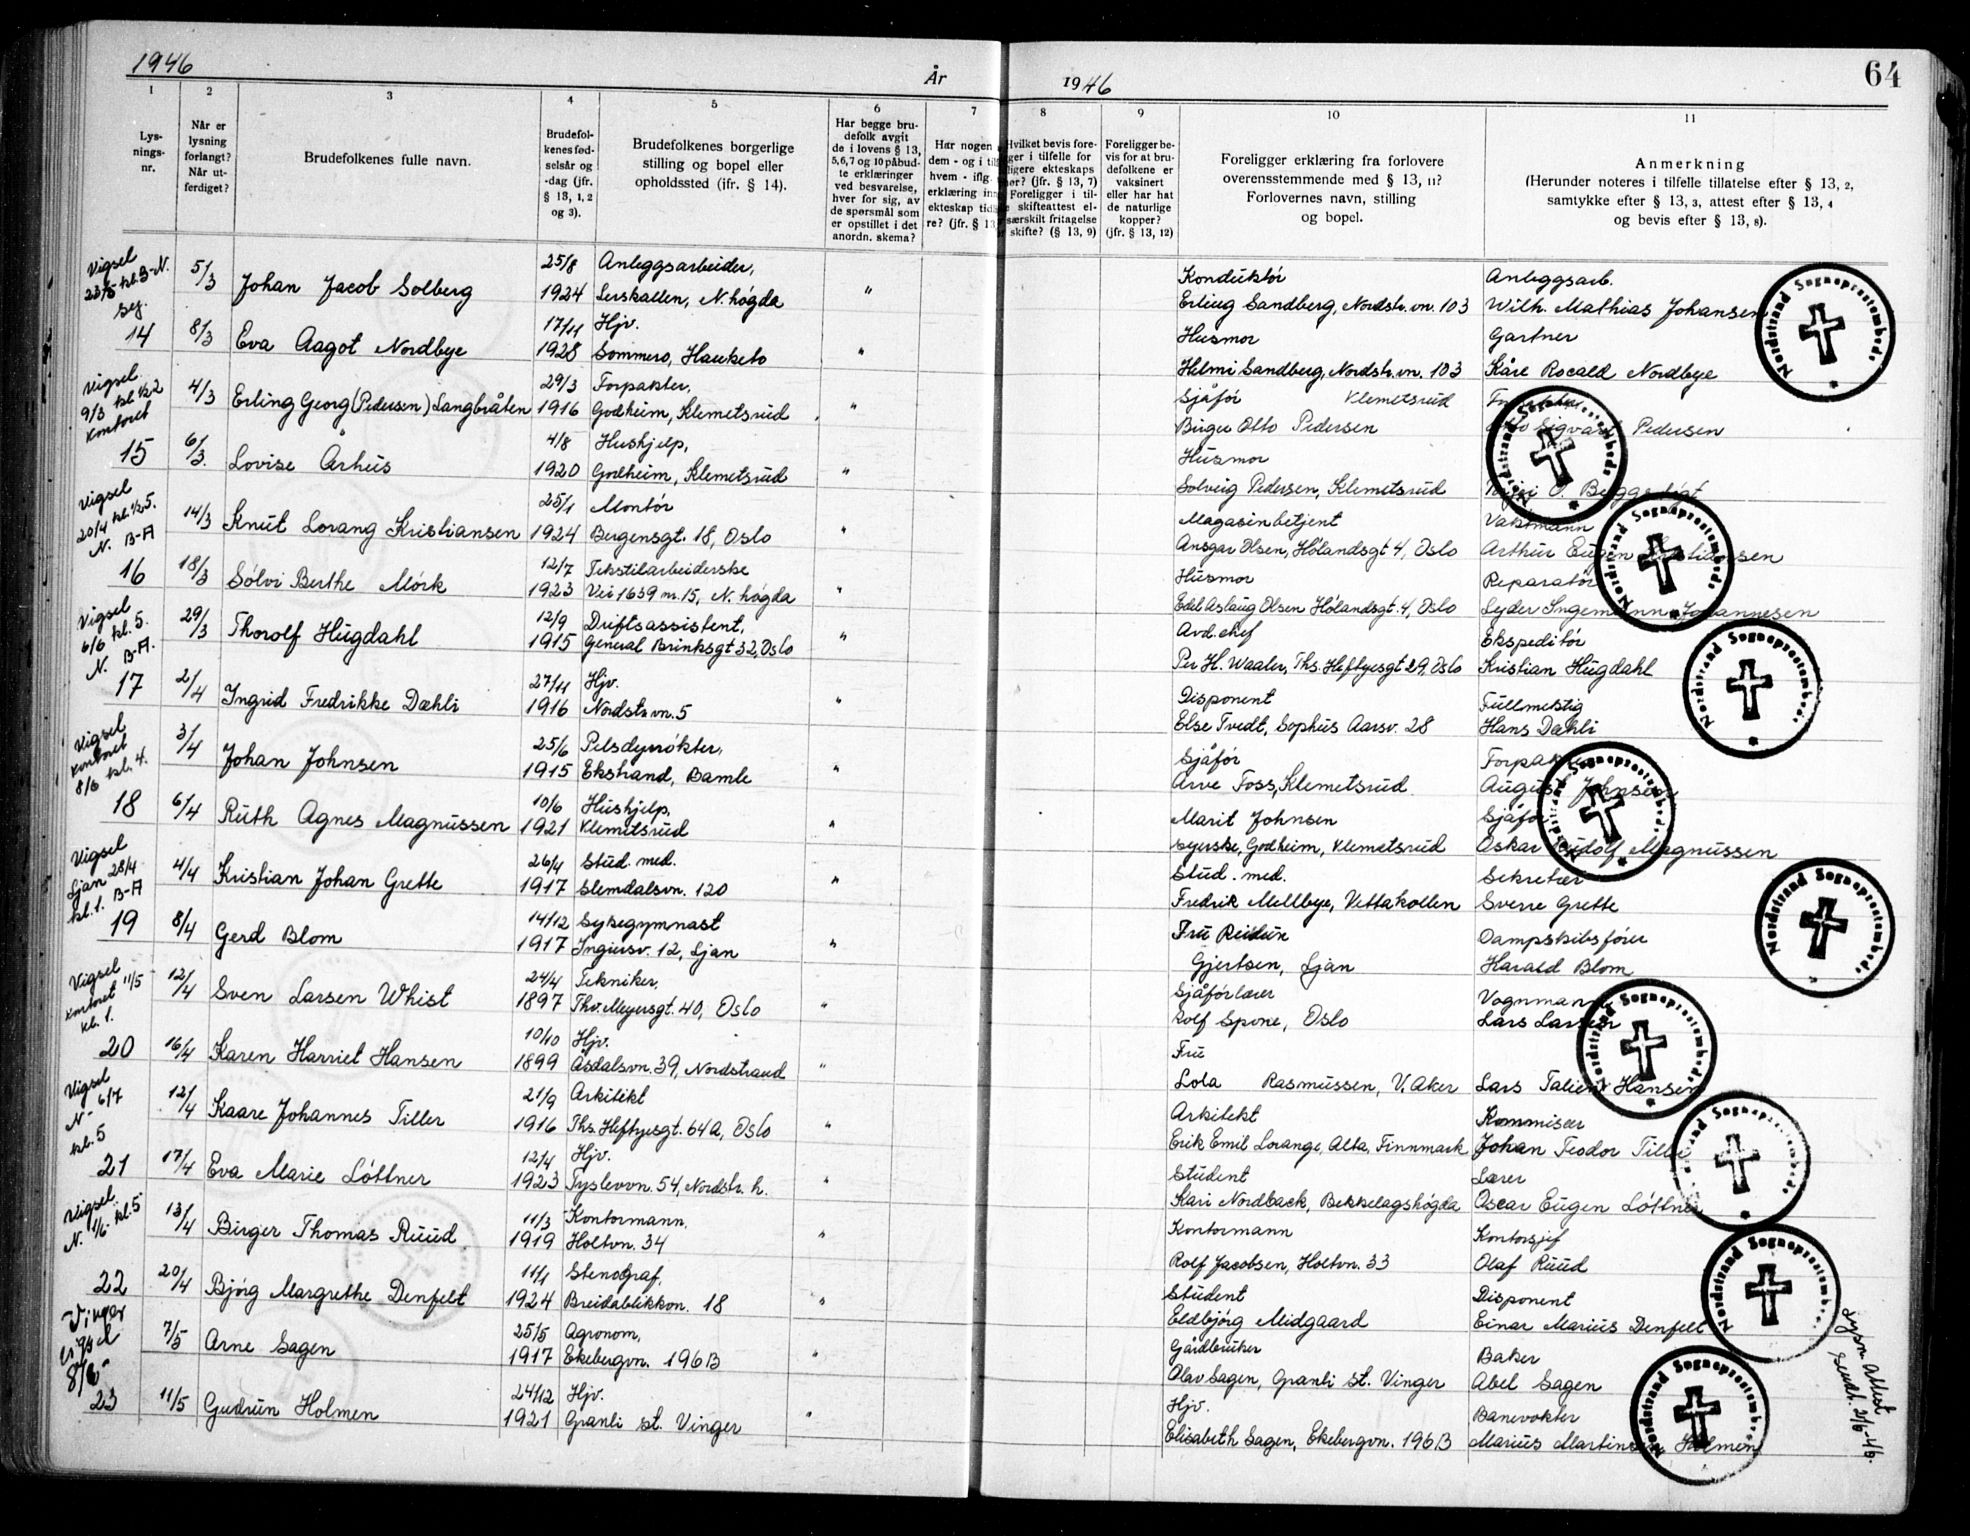 1946
År
1946
64
1
2
3
4
5
6
7
8
9
10
11
Lys-
nings-
nr.
Når er
lysning
forlangt?
Når ut-
ferdiget?
Brudefolkenes fulle navn.
Brudefol-
kenes fød-
selsår og
-dag (jfr.
§ 13, 1, 2
og 3).
Brudefolkenes borgerlige
stilling og bopel eller
opholdssted (ifr. § 14).
Har begge bru-
defolk avgit
de i lovens § 13,
5, 6, 7 og 10 påbud-
te erklæringer
ved besvarelse,
hver for sig, av
de spørsmål som
er opstillet i det
anordn. skema?
Har nogen
dem - og i til
hvem - iflg.
erklæring inn
ekteskap tid
re? (jfr. § 13
Hvilket bevis fore-
ger i tilfelle for
ligere ekteskaps
hør? (jfr. § 13, 7)
Foreligger i til-
e skifteattest el-
særskilt fritagelse
skifte? (§ 13, 9)
Foreligger be-
vis for at bru-
defolkene er
vaksinert
eller har hat
de naturlige
kopper?
(jfr. § 13, 12)
Foreligger erklæring fra forlovere
overensstemmende med § 13, 11?
Forlovernes navn, stilling
og bopel.
Anmerkning
(Herunder noteres i tilfelle tillatelse efter § 13, 2,
samtykke efter § 13, 3, attest efter § 13, 4
og bevis efter § 13, 8).
Vigsel
23/5 kl. 3-N.
Seg.
5/3 Johan Jacob Solberg 25/8 1924 Anleggsarbeider,
Serskallen, N.høgda "
Konduktör
Erling Sandberg, Nordstr.vn. 103
Anleggsarb.
Wilh. Mathias Johansen
14 8/3 Eva Aagot Nordbye 17/11 1928 Hjv.
Sommero, Hauketo "
Husmor
Helmi Sandberg, Nordstr.vn. 103
Gartner
Kåre Roald Nordbye
Vigsel
9/3 kl 1/2 2
Kontoret
4/3 Erling Georg (Pedersen) Langbråten 29/3 1916 Forpakter,
Godheim, Klemetsrud "
Sjåför Klemetsrud
Birger Otto Pedersen
Sigvart Pedersen
15 6/3. Lovise Århus 4/8 1920 Hushjelp,
Godheim, Klemetsrud "
Husmor
Solveig Pedersen, Klemetsrud
Vigsel
20/4 kl. 1/2 5.
N. B-A
14/3 Knut Lorang Kristiansen 25/1 1924 Montör
Bergensgt. 18, Oslo "
Magasinbetjent
Ansgar Olsen, Hölandsgt 4, Oslo
Vaktmann
Arthur Eugen Kristiansen
16 18/3 Sölvi Berthe Mörk 12/7 1923 Tekstilarbeiderske
Vei 1659 nr. 15, N. högda "
Husmor
Edel Aslaug Olsen Hölandsgt. 4, Oslo
Reparatör
Leyder Ingemann Johannesen
Vigsel
6/6 kl. 5.
N. B-A.
29/3 Thorolf Hugdahl 12/9 1915 Driftsassistent,
General Birchsgt 32, Oslo "
Avd. chef
Per H. Waaler, Ths. Heftyesgt 29, Oslo
Ekspeditör
Kristian Hugdahl
17 2/4 Ingrid Fredrikke Dæhli 27/11 1916 Hjv.
Nordstr.vn. 5 "
Disponent
Else Tvedt, Sophus Aarsv. 28
Fullmektig
Hans Dæhli
Vigsel
Kontoret
8/6 kl. 4.
3/4 Johan Johnsen 25/6 1915 Pelsdyrrökter,
Ekstrand, Bamle "
Sjåför
Arve Foss, Klemetsrud
Forpakter
August Johnsen
18 6/4 Ruth Agnes Magnussen 10/6 1921 Hushjelp,
Klemetsrud "
Marit Johnsen
syerske, Godheim, Klemetsrud
Sjåför
Oskar Rudolf Magnussen
Vigsel
Ljan 28/4
kl. 1. B-A
4/4 Kristian Johan Grette 26/4 1917 Stud. med.
Slemdalsvn. 120 "
Stud. med.
Fredrik Mellbye, Vettakollen
Sekretær
Sverre Grette
19 8/4 Gerd Blom 14/12 1917 Sykegymnast
Ingiersv. 12, Ljan "
Fru Reidun
Gjertsen, Ljan
Dampskibsförer
Harald Blom
Vigsel
Kontoret 11/5
kl. 1.
12/4 Sven Larsen Whist 24/4 1897 Tekniker,
Thv. Meyersgt. 40, Oslo "
Sjåförlærer
Rolf Spone, Oslo
Vognmann
Lars Larsen
20 16/4 Karen Harriet Hansen 10/10 1899 Hjv.
Åsdalsvn. 39, Nordstrand "
Fru
Lola Rasmussen, V. Aker
Lars Hansen
Vigsel
N- 6/7
kl. 5
12/4 Kaare Johannes Tiller 21/9 1916 Arkitekt
Ths. Heftyesgt. 64A, Oslo "
Arkitekt
Erik Emil Lorange, Alta, Finnmark
Kommisær
Johan Teodor Tiller
21 17/4 Eva Marie Löttner 12/4 1923 Hjv.
Tyslevvn. 54, Nordstr. h. "
Student
Kari Nordback, Bekkelagshögda
Lærer
Oscar Eugen Löttner
Vigsel
N. 1/6- kl. 5
13/4 Birger Thomas Ruud 11/3 1919 Kontormann,
Holtvn. 34 "
Kontormann
Rolf Jacobsen, Holtvn. 33
Kontorsjef
Olaf Ruud
22 20/4 Bjórg Margrethe Denfelt 11/1 1924 Stenograf,
Breidablikkvn. 18 "
Student
Eldbjórg Midgaard
Disponent
Einar Marius Denfelt
Vinger
vigsel
8/6
7/5 Arne Sagen 25/5 1917 Agronom,
Ekebergvn. 196B "
Gårdbruker
Olav Sagen, Granli st. Vinger
Baker
Abel Sagen
23 11/5 Gudrun Holmen 24/12 1921 Hjv.
Granli st. Vinger "
Hjv.
Elisabeth Sagen, Ekebergvn. 196B
Banevokter
Marius Martinsen Holmen
Lysn. attest
sendt. 21/6-46.
Nordstrand Sogneprestembede
Nordstrand Sogneprestembede
Nordstrand Sogneprestembede
Nordstrand Sogneprestembede
Nordstrand Sogneprestembede
Nordstrand Sogneprestembede
Nordstrand Sogneprestembede
Nordstrand Sogneprestembede
Nordstrand Sogneprestembede
Nordstrand Sogneprestembede